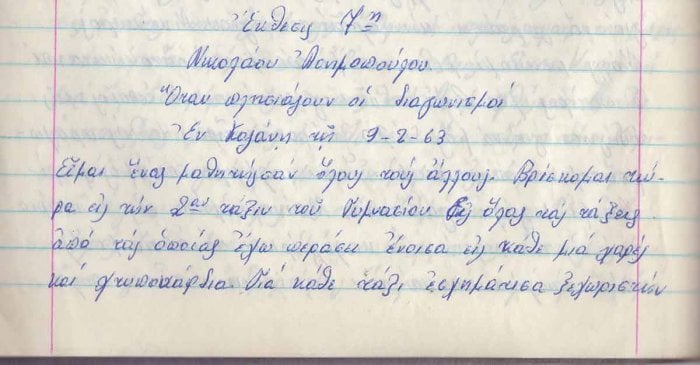 Ἔκθεσις 7η
Νικολάου Ἀσημοπούλου
Ὅταν πλησιάζουν οἱ διαγωνισμοί
Ἐν Κοζάνῃ τῇ 9-2-63
Εἶμαι ἕνας μαθητής σάν ὅλους τούς ἄλλους. Βρίσκομαι τώ-
ρα εἰς τήν 2αν τάξιν τοῦ Γυμνασίου. Εἰς ὅλας τάς τάξεις
ἀπό τάς ὁποίας ἔχω περάσει ἔνοισα εἰς κάθε μιά χαρές
καί χτυποκάρδια. Γιά κάθε τάξι ἐσχημάτισα ξεχωριστήν